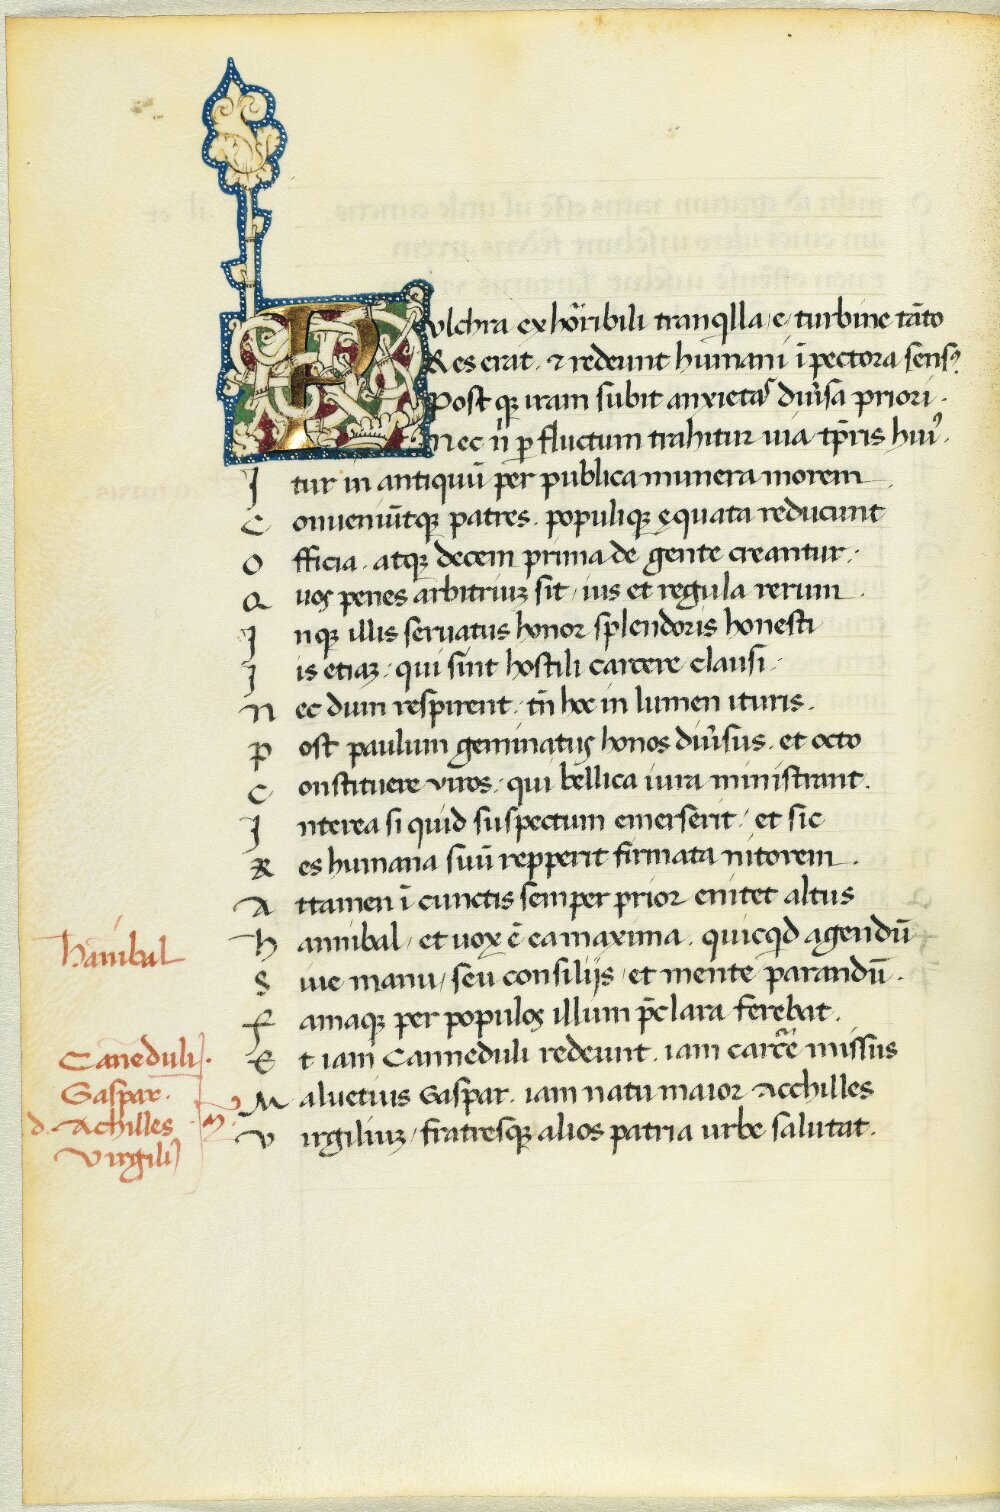 Pulchra ex hōribili tranqlla e turbine tāto
Res erat . & redeunt humani ī pectora sensꝰ.
Post qꝫ iram subit anxietas diuīsa priori .
Nec ii ꝑ fluctum trahitur uia tꝑris huiꝰ .
Itur in antiquū per publica munera morem
Conueniūtqꝫ patres . populiqꝫ ęquata reducunt
Officia . atqꝫ decem prima de gente creantur .
Quoꝝ penes arbitriuꝫ sit / ius et regula rerum .
Inqꝫ illis seruatus honor splendoris honesti
Iis etiaꝫ / qui sint hostili carcere clausi .
Nec dum respirent / tn̄ hoc in lumen ituris .
Post paulum geminatus honos diuīsus . et octo
Constituere viros / qui bellica iura ministrant .
Interea si quid suspectum emerserit / et sic
Res humana suū repperit firmata nitorem .
Attamen ī cunctis semper prior enitet altus
hannibal / et uox ē ea maxima . quicqd agendū
Siue manu / seu consilijs / et mente parandū .
Famaqꝫ per populos illum p̄clara ferebat .
Et iam Canneduli redeunt . iam carcere missus
Maluetius Gaspar . iam natu maior Acchilles
Virgiliuꝫ / fratresqꝫ alios patria urbe salutat .
hanibal
Caneduli .
Gaspar .
d . Achilles
Virgili
M .